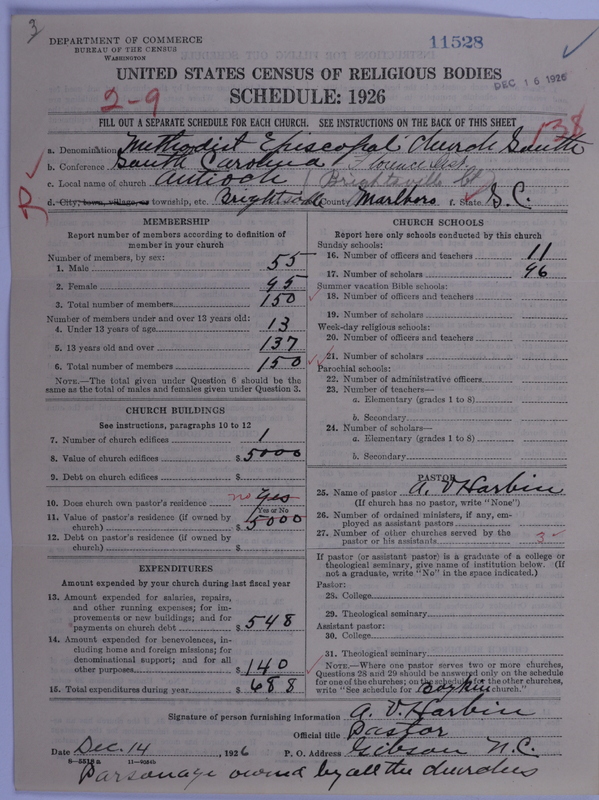 3
DEPARTMENT OF COMMERCE
BUREAU OF THE CENSUS
WASHINGTON
11528
UNITED STATES CENSUS OF RELIGIOUS BODIES
DEC 16 1926
2-9
SCHEDULE: 1926
FILL OUT A SEPARATE SCHEDULE FOR EACH CHURCH. SEE INSTRUCTIONS ON THE BACK OF THIS SHEET
138
a. Denomination Methodist Episcopal Church South
b. Conference South Carolina Florence Dist
c. Local name of church Antioch (Brightsville
d. City, town, village, or township, etc. Brightsville County Marlboro f. State S.C.
MEMBERSHIP
Report number of members according to definition of member in your church
Number of members, by sex:
1. Male 55
2. Female 95
3. Total number of members 150
Number of members under and over 13 years old:
4. Under 13 years of age 13
5. 13 years old and over 137
6. Total number of members 150
NOTE.—The total given under Question 6 should be the same as the total of males and females given under Question 3.
CHURCH BUILDINGS
See instructions, paragraphs 10 to 12
7. Number of church edifices 1
8. Value of church edifices $ 5000
9. Debt on church edifices $
10. Does church own pastor's residence no Yes
Yes or No
11. Value of pastor's residence (if owned by church) $ 5000
12. Debt on pastor's residence (if owned by church) $
EXPENDITURES
Amount expended by your church during last fiscal year
13. Amount expended for salaries, repairs, and other running expenses; for improvements or new buildings; and for payments on church debt $ 548
14. Amount expended for benevolences, including home and foreign missions; for denominational support; and for all other purposes $ 140
15. Total expenditures during year $ 688
CHURCH SCHOOLS
Report here only schools conducted by this church
Sunday schools:
16. Number of officers and teachers 11
17. Number of scholars 96
Summer vacation Bible schools:
18. Number of officers and teachers
19. Number of scholars
Week-day religious schools:
20. Number of officers and teachers
21. Number of scholars
Parochial schools:
22. Number of administrative officers
23. Number of teachers—
a. Elementary (grades 1 to 8)
b. Secondary
24. Number of scholars—
a. Elementary (grades 1 to 8)
b. Secondary
PASTOR
25. Name of pastor A. V Harbin
(If church has no pastor, write "None")
26. Number of ordained ministers, if any, employed as assistant pastors
27. Number of other churches served by the pastor or his assistants 3
If pastor (or assistant pastor) is a graduate of a college or theological seminary, give name of institution below. (If not a graduate, write "No" in the space indicated.)
Pastor:
28. College
29. Theological seminary
Assistant pastor:
30. College
31. Theological seminary
NOTE.—Where one pastor serves two or more churches, Questions 28 and 29 should be answered only on the schedule for one of the churches; on the schedule for the other churches, write "See schedule for Boykin church."
Signature of person furnishing information A. V. Harbin
Official title Pastor
Date Dec. 14, 1926 P. O. Address Gibson N.C.
8-5518a 11-9024b
Parsonage owned by all the churches